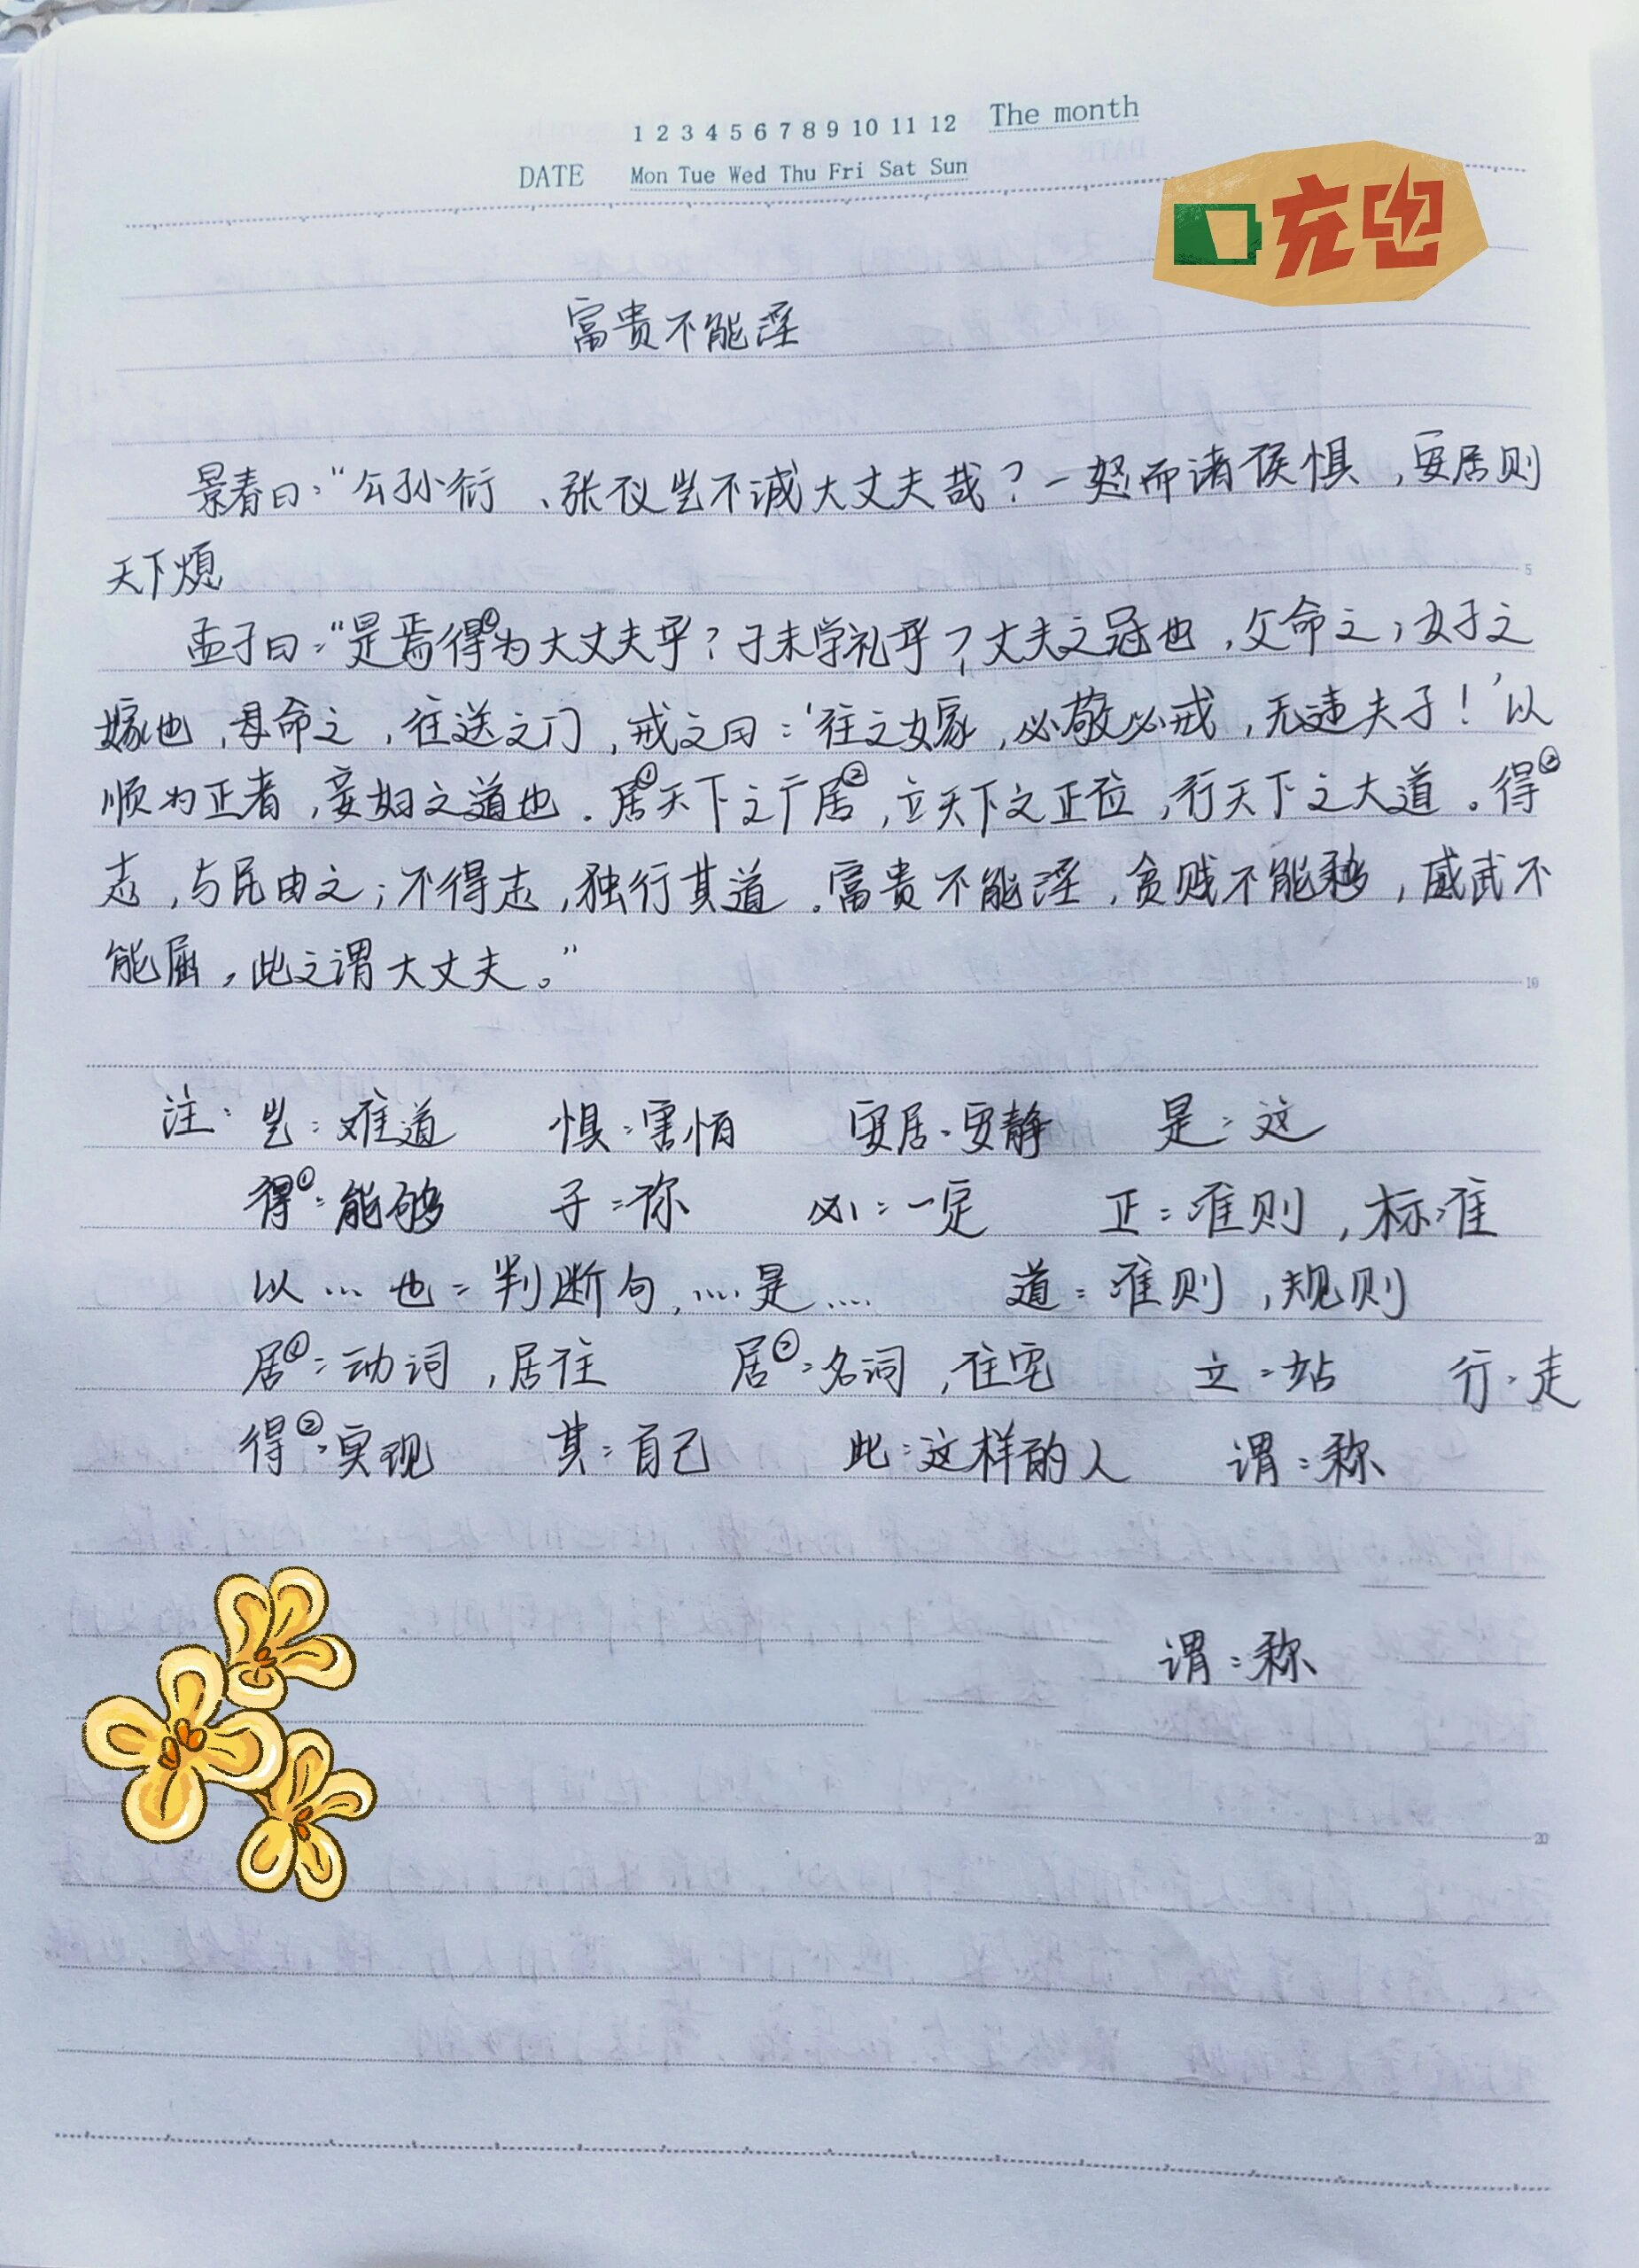 1 2 3 4 5 6 7 8 9 10 11 12 The month
DATE Mon Tue Wed Thu Fri Sat Sun
充电
富贵不能淫
景春曰:“公孙衍、张仪岂不诚大丈夫哉?一怒而诸侯惧,安居则
天下熄
5
孟子曰:“是焉得①为大丈夫乎?子未学礼乎?丈夫之冠也,父命之;女子之
嫁也,母命之,往送之门,戒之曰:‘往之女家,必敬必戒,无违夫子!’以
顺为正者,妾妇之道也。居①天下之广居②,立天下之正位,行天下之大道。得②
志,与民由之;不得志,独行其道。富贵不能淫,贫贱不能移,威武不
能屈,此之谓大丈夫。”
10
注:岂:难道 惧:害怕 安居:安静 是:这
得①:能够 子:你 必:一定 正:准则,标准
以…也:判断句,…是… 道:准则,规则
居①:动词,居住 居②:名词,住宅 立:站 行:走
得②:实现 其:自己 此:这样的人 谓:称
谓:称
20